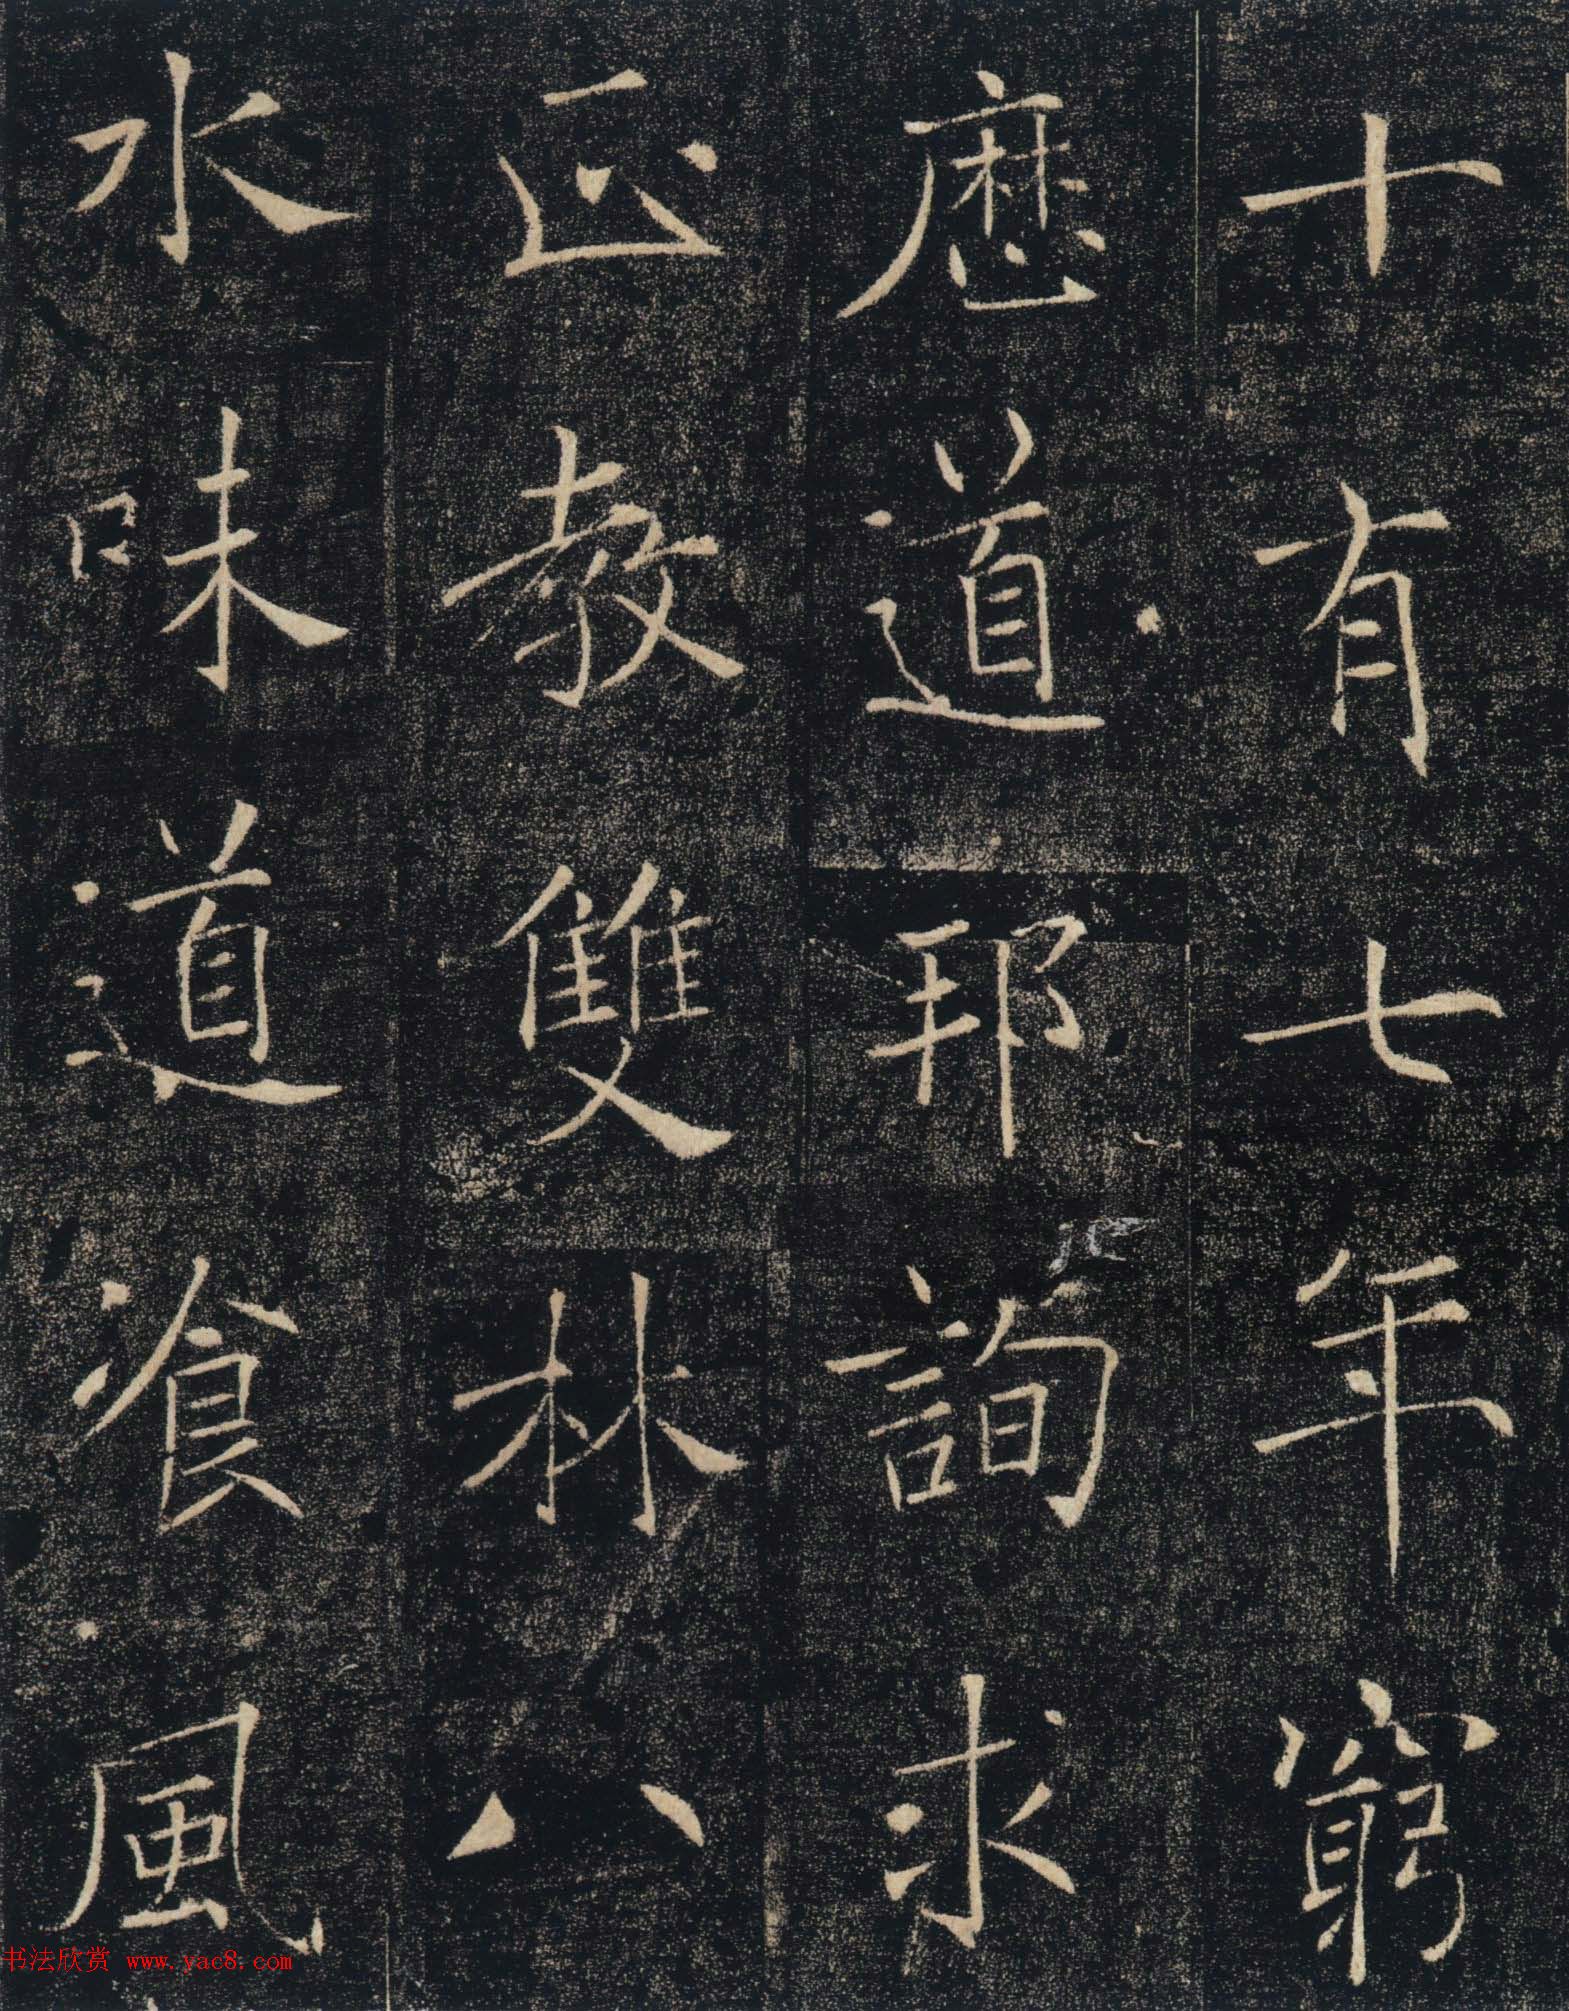 十有七年窮
歷道邪詢求
正教雙林八
水味道飡風
书法欣赏 www.yac8.com